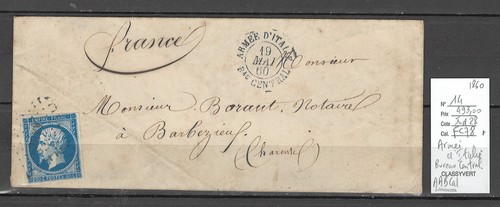 France
ARMÉE D'ITALIE
19
MAI
60
BAU CENTRAL
Monsieur
Monsieur Boraud, Notaire
à Barbezieux
Charente
1860
N° 14
Prix 495,00
Cote
Cat.
Armée
d'Italie
Bureau Central
CLASSYVERT